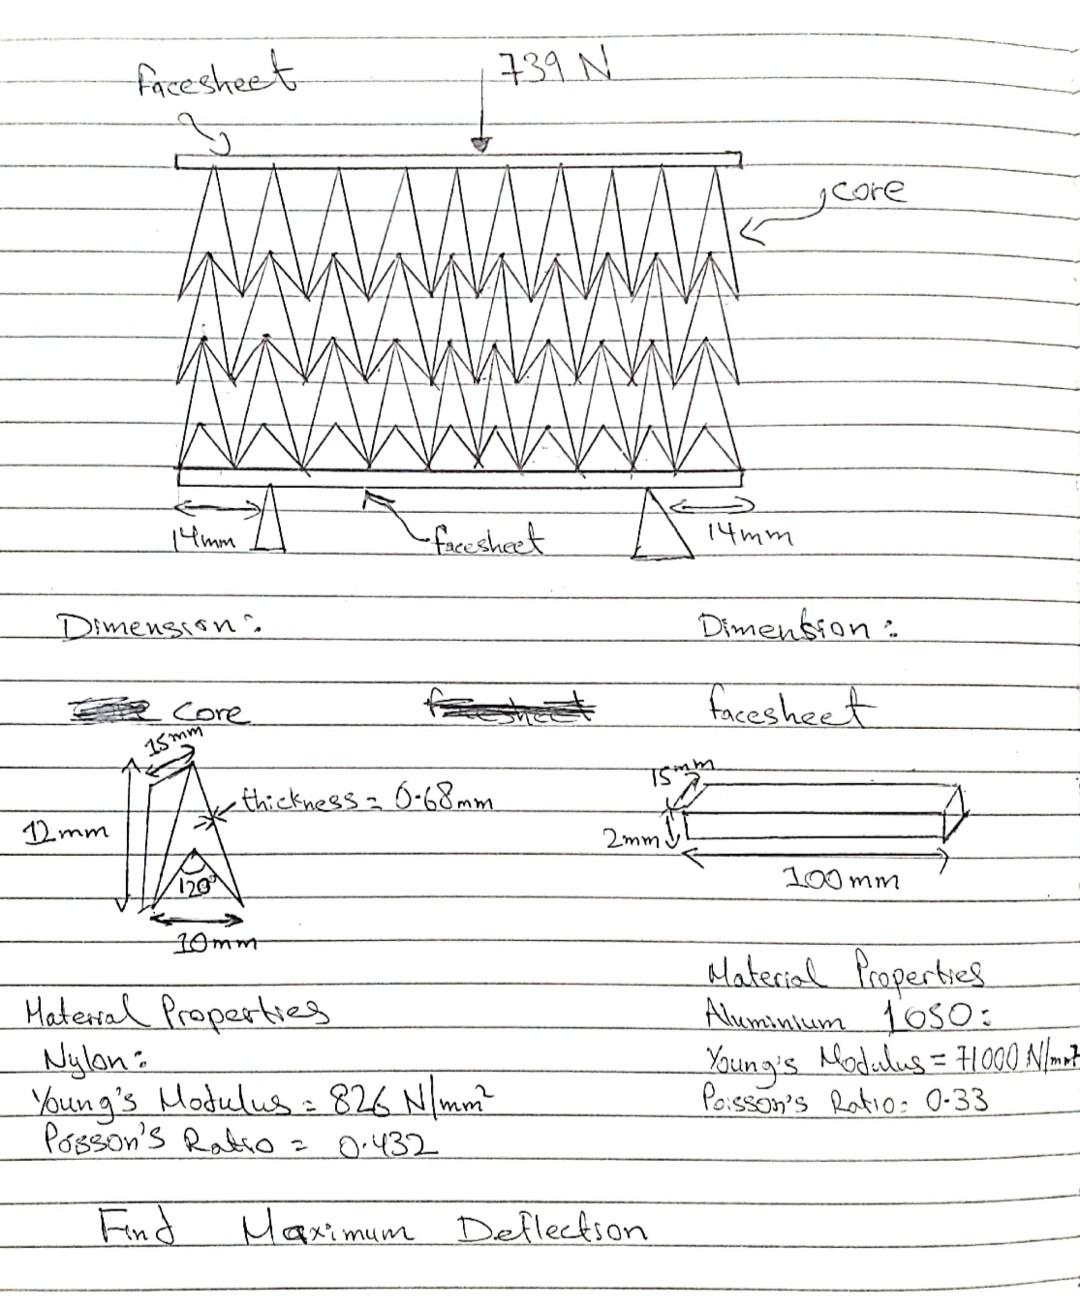 739 N
facesheet
core
14mm
facesheet
14mm
Dimension:
Dimension:
core
facesheet
15mm
thickness = 0.68mm
12mm
120°
10mm
15mm
2mm
100mm
Material Properties
Nylon:
Young's Modulus = 826 N/mm²
Posson's Ratio = 0.432
Material Properties
Aluminium 1050:
Young's Modulus = 71000 N/mm²
Poisson's Ratio: 0.33
Find Maximum Deflection